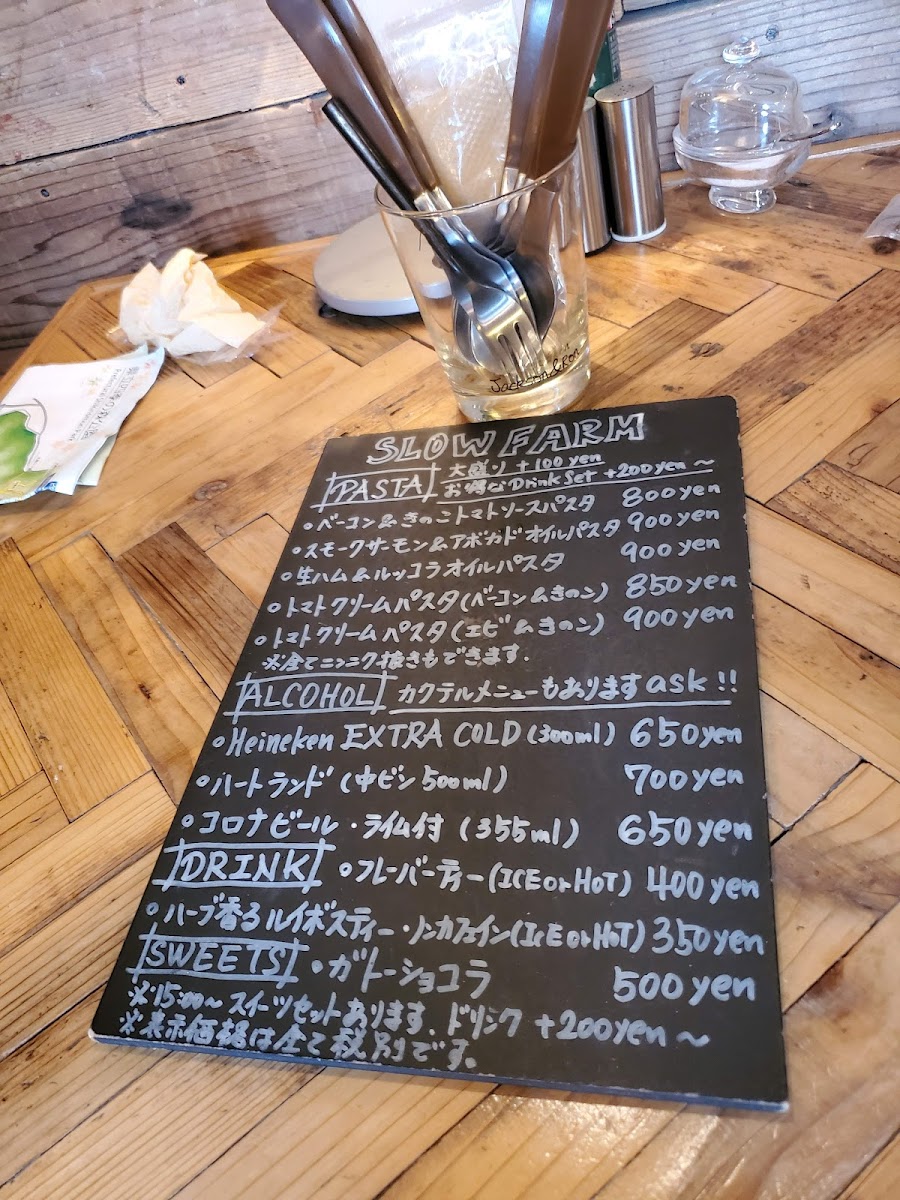 Jackson&Ron
SLOW FARM
PASTA 大盛り +100yen
お得なDrink Set +200yen～
・ベーコン&きのこトマトソースパスタ 800yen
・スモークサーモン&アボカドオイルパスタ 900yen
・生ハム&ルッコラオイルパスタ 900yen
・トマトクリームパスタ(ベーコン&きのこ) 850yen
・トマトクリームパスタ(エビ&きのこ) 900yen
※全てニンニク抜きもできます.
ALCOHOL カクテルメニューもあります ask!!
・Heineken EXTRA COLD (300ml) 650yen
・ハートランド (中ビン500ml) 700yen
・コロナビール・ライム付 (355ml) 650yen
DRINK ・フレーバーティー(ICE or HOT) 400yen
・ハーブ香るルイボスティー・ノンカフェイン(ICE or HOT) 350yen
SWEETS ・ガトーショコラ 500yen
※15:00～スイーツセットあります.ドリンク +200yen～
※表示価格は全て税別です.